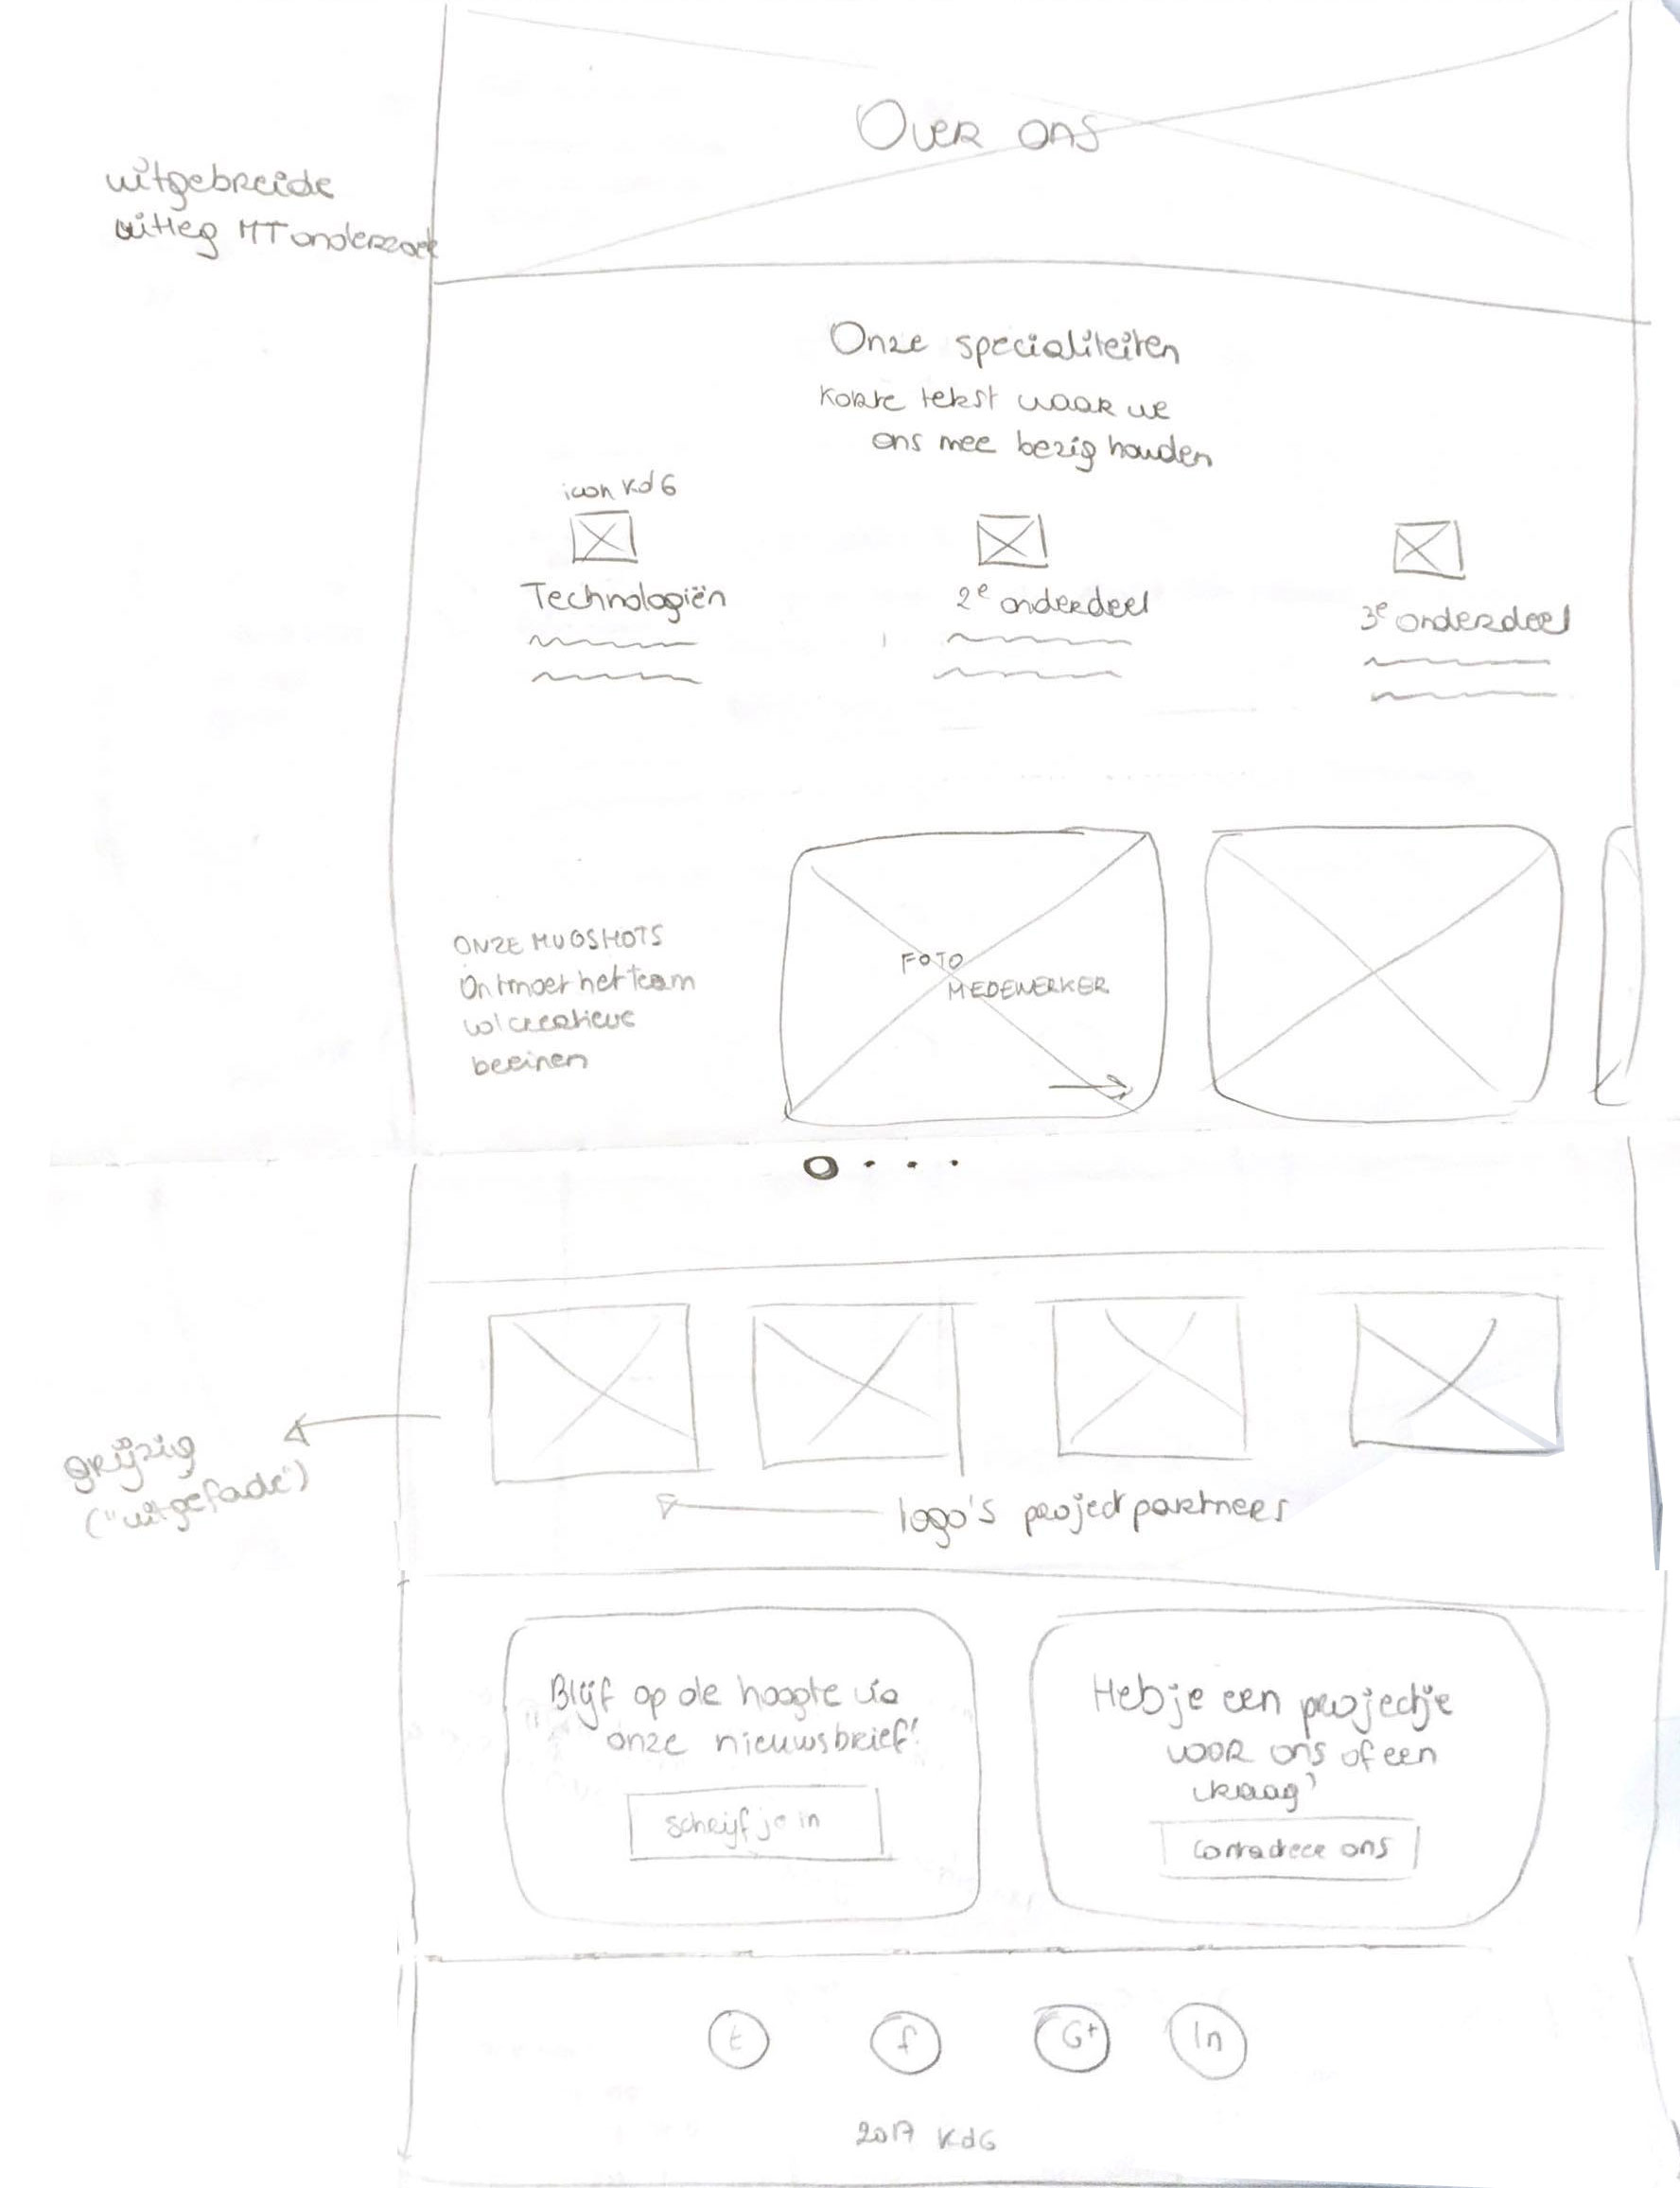 Over ons
uitgebreide
uitleg MT onderzoek
Onze specialiteiten
Korte tekst waar we
ons mee bezig houden
icon KdG
Technologiën
2e onderdeel
3e onderdeel
ONZE MUGSHOTS
Ontmoet het team
w/ creatieve
beeinen
FOTO
MEDEWERKER
grijzig
("uitgefade")
logo's projectpartners
Blijf op de hoogte via
onze nieuwsbrief!
schrijf je in
Heb je een projectje
voor ons of een
vraag?
Contacteer ons
t
f
G+
In
2017 KdG